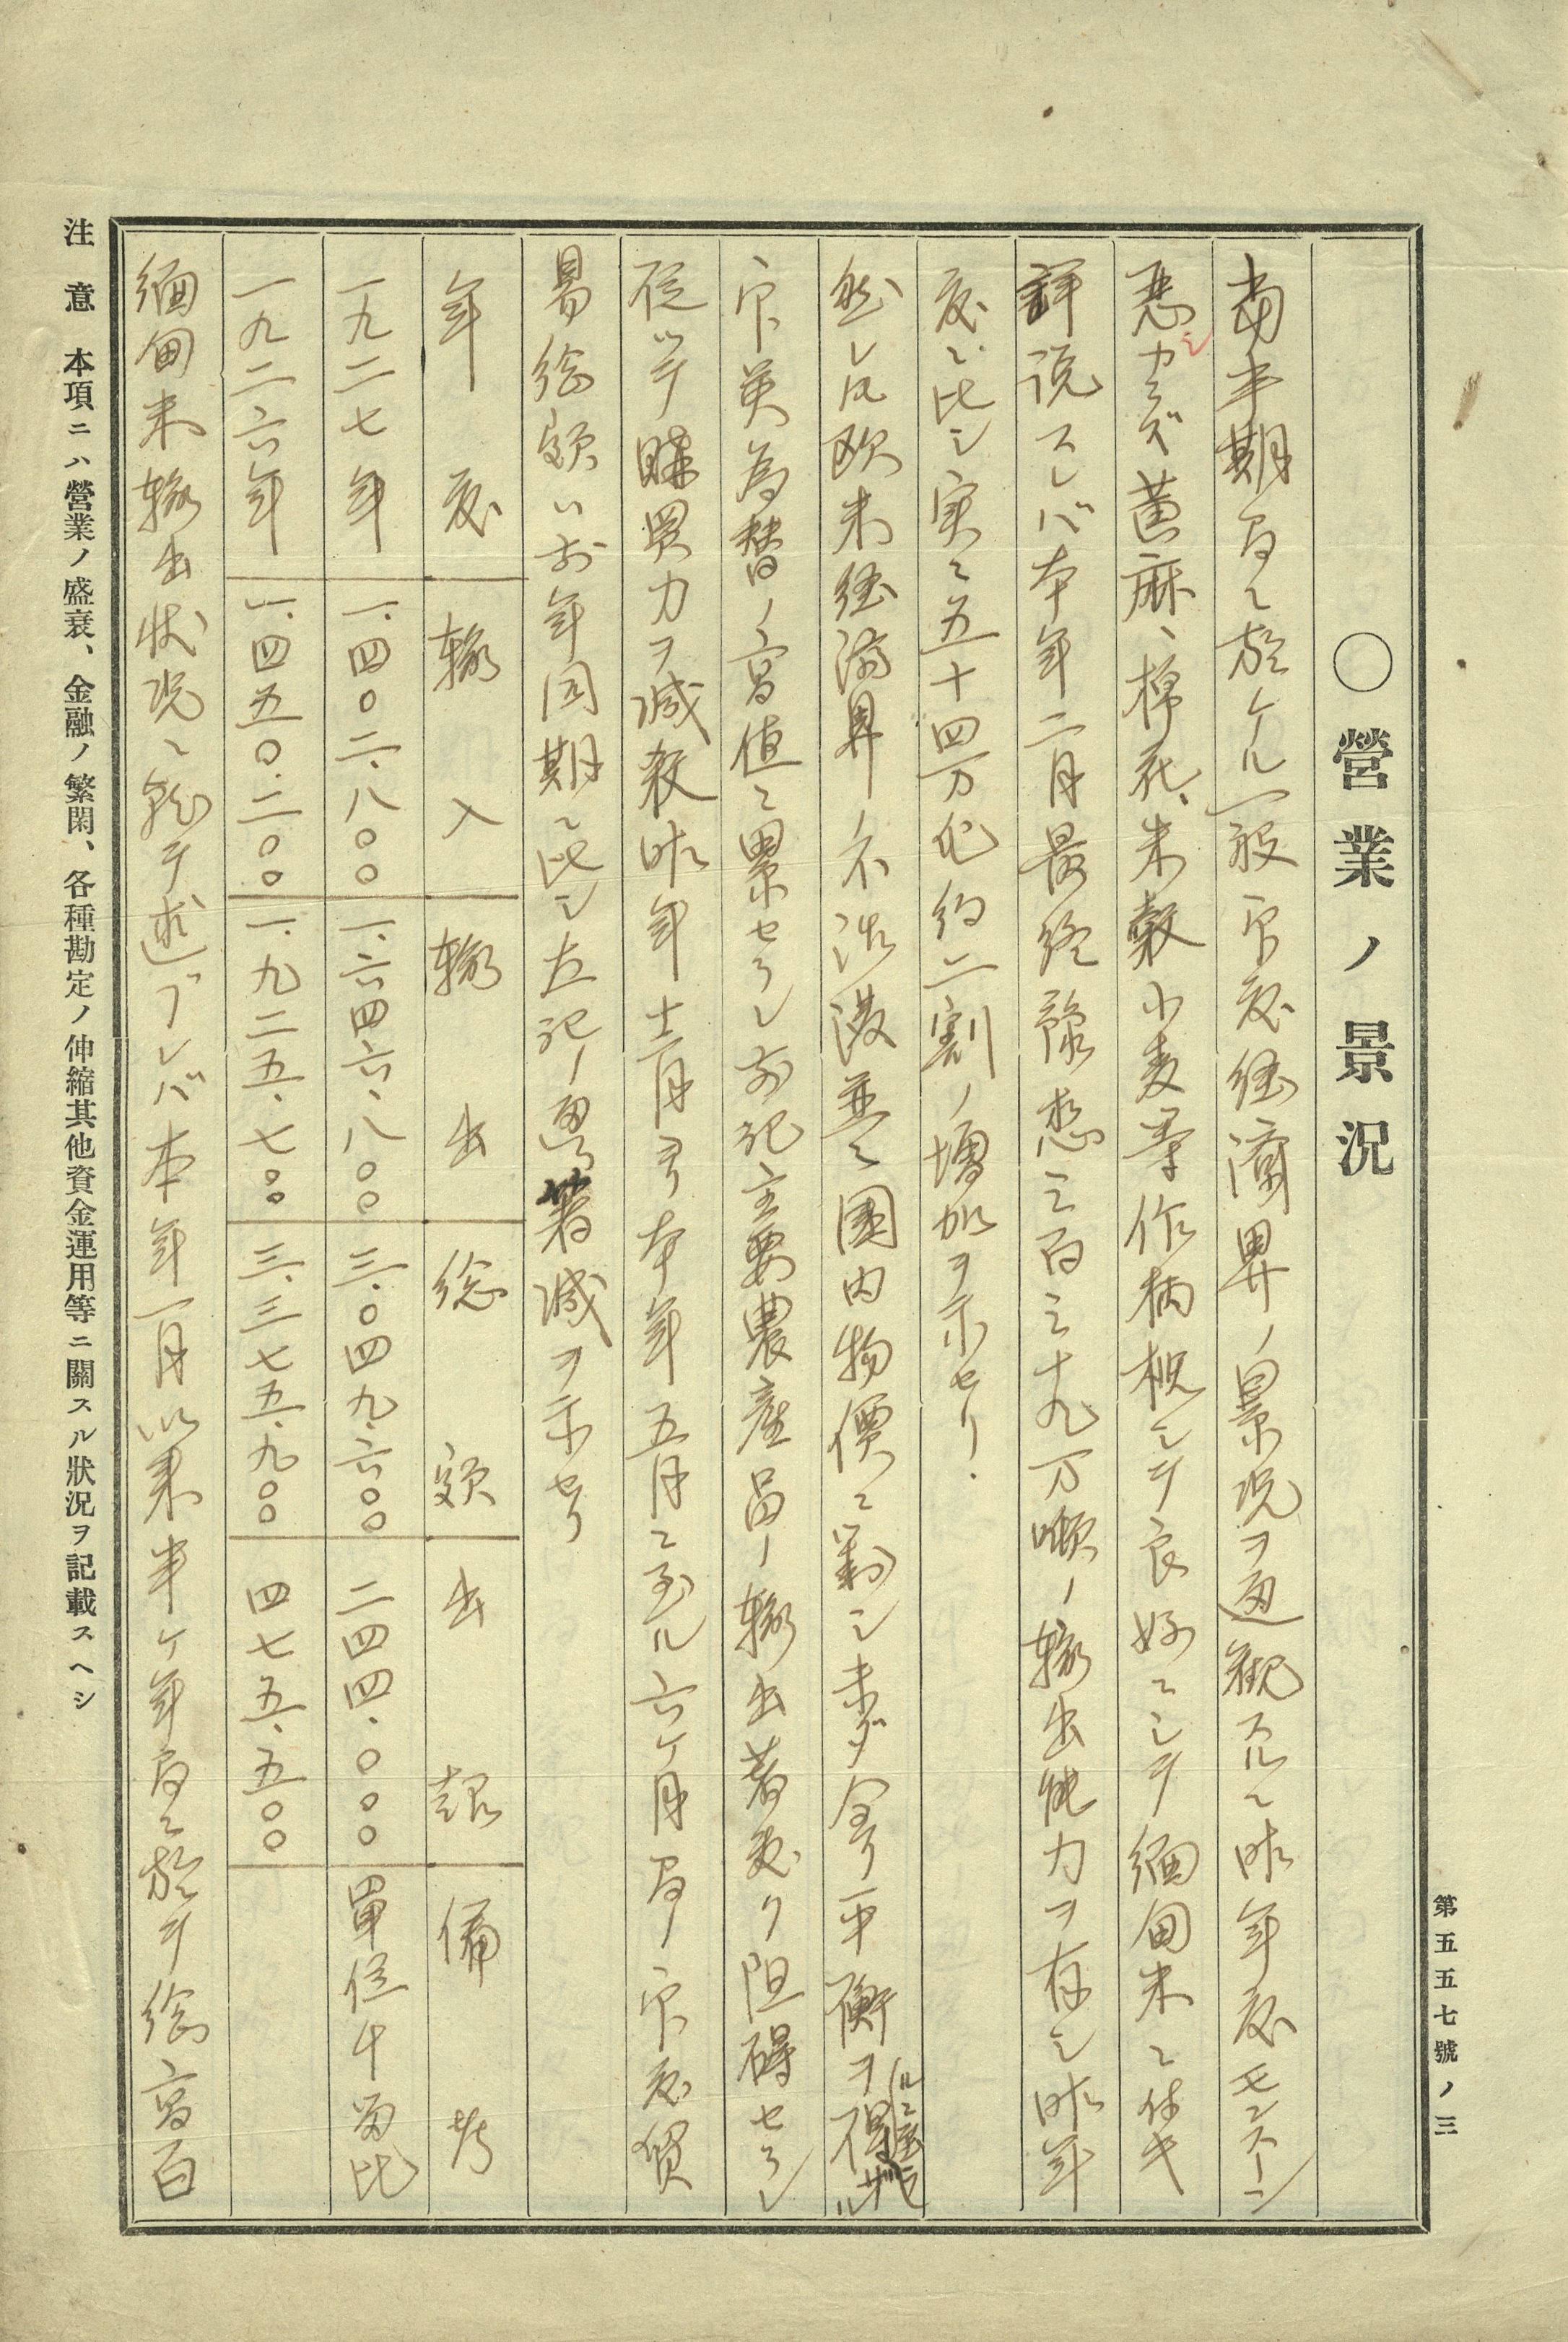 第五五七號ノ三
〇營業ノ景況
當半期間ニ於ケル一般印度經濟界ノ景況ヲ通觀スルニ昨年度モンスーン
悪シカラズ黄麻、棉花、米穀小麦等作柄概シテ良好ニシテ緬甸米ニ付キ
詳説スレバ本年二月最終豫想三百三十九万噸ノ輸出能力ヲ存シ昨年
度ニ比シ実ニ五十四万也約二割ノ増加ヲ示セリ.
然レ共欧米経済界ノ不活溌並ニ國内物價ニ對シ未ダ全ク平衡ヲ得ザル
ルニ至ラ
印英為替ノ高值ニ累セラレ前記主要農産品ノ輸出著敷ク阻碍セラレ
従ツテ購買力ヲ減殺昨年十二月ヨリ本年五月ニ至ル六ケ月間ノ印度貿
易総額ハ前年同期ニ比シ左記ノ通リ著減ヲ示セリ
年度 輸入 輸出 総額 出超 備考
一九二七年 一.四〇二.八〇〇 一.六四六.八〇〇 三.〇四九.六〇〇 二四四.〇〇〇 單位千留比
一九二六年 一.四五〇.二〇〇 一.九二五.七〇〇 三.三七五.九〇〇 四七五.五〇〇
緬甸米輸出状況ニ就テ述ブレバ本年一月以来半ケ年間ニ於テ総高百
注意 本項ニハ營業ノ盛衰、金融ノ繁閑、各種勘定ノ伸縮其他資金運用等ニ關スル狀況ヲ記載スヘシ